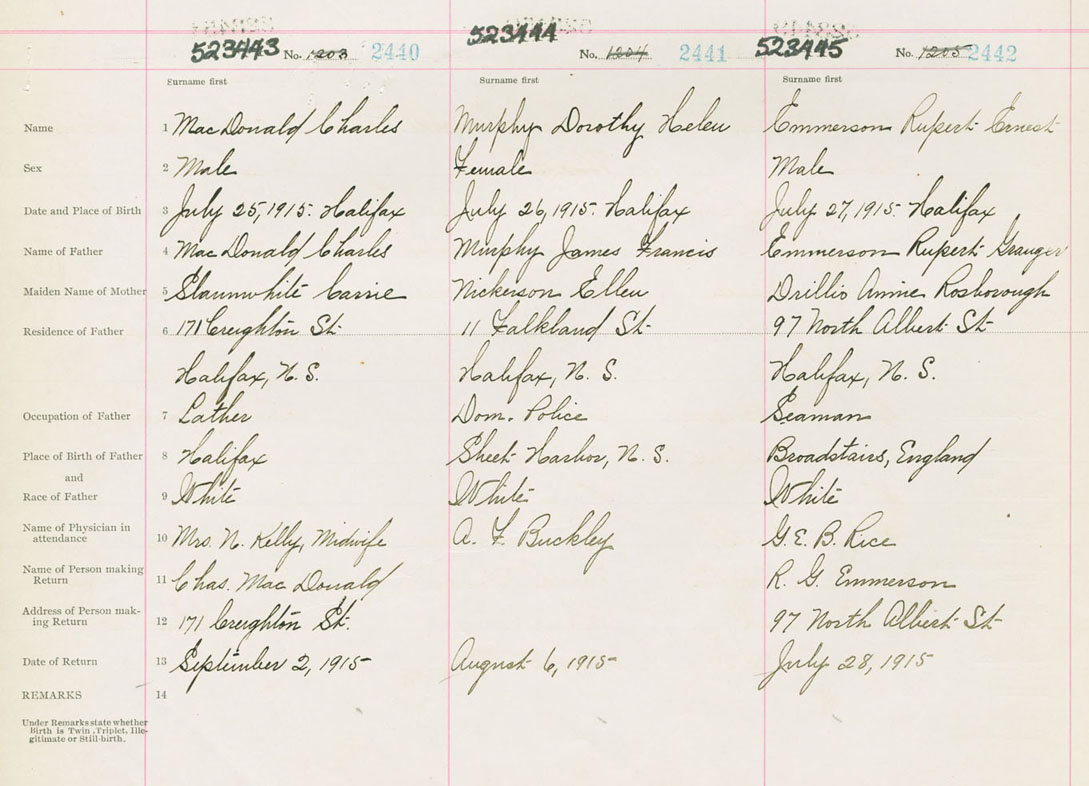 523443 No. 1203 2440 523444 No. 1204 2441 523445 No. 1205 2442
Surname first Surname first Surname first
Name 1 MacDonald Charles Murphy Dorothy Helen Emmerson Rupert Ernest
Sex 2 Male Female Male
Date and Place of Birth 3 July 25, 1915. Halifax July 26, 1915. Halifax July 27, 1915. Halifax
Name of Father 4 MacDonald Charles Murphy James Francis Emmerson Rupert Granger
Maiden Name of Mother 5 Slaunwhite Carrie Nickerson Ellen Drillio Annie Rosborough
Residence of Father 6 171 Creighton St. 11 Falkland St. 97 North Albert St.
Halifax, N. S. Halifax, N. S. Halifax, N. S.
Occupation of Father 7 Lather Dom. Police Seaman
Place of Birth of Father 8 Halifax Sheet Harbor, N. S. Broadstairs, England
and
Race of Father 9 White White White
Name of Physician in
attendance 10 Mrs. N. Kelly, Midwife A. F. Buckley G. E. B. Rice
Name of Person making
Return 11 Chas. MacDonald R. G. Emmerson
Address of Person mak-
ing Return 12 171 Creighton St. 97 North Albert St.
Date of Return 13 September 2, 1915 August 6, 1915 July 28, 1915
REMARKS 14
Under Remarks state whether
Birth is Twin, Triplet, Ille-
gitimate or Still-birth.